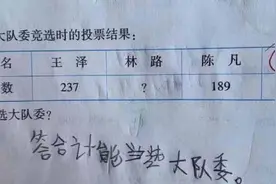 大队委竞选时的投票结果：
名 王泽 林路 陈凡
数 237 ? 189
选大队委？
答合计能当些大队委。